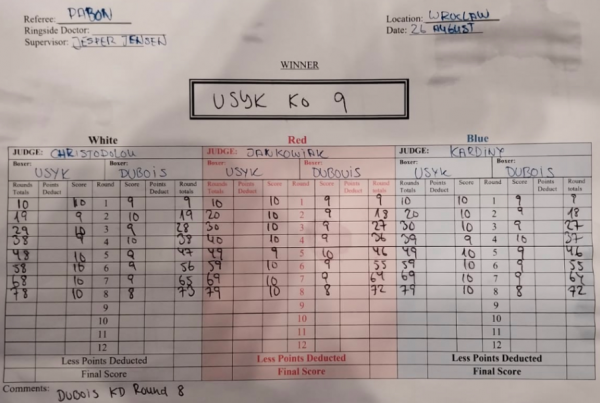 Referee: PABON
Ringside Doctor:
Supervisor: JESPER JENSEN
Location: WROCLAW
Date: 26 AUGUST
WINNER
USYK KO 9
White Red Blue
JUDGE: CHRISTODOLOU JUDGE: JANKOWIAK JUDGE: KARDINY
Boxer: Boxer: Boxer: Boxer: Boxer: Boxer:
USYK DUBOIS USYK DUBOUIS USYK DUBOIS
Rounds Totals Points Deduct Score Round Score Points Deduct Round totals Rounds Totals Points Deduct Score Round Score Points Deduct Rounds totals Rounds Totals Points Deduct Score Round Score Points Deduct Round totals
10 10 1 9 9 10 10 1 9 9 10 10 1 9 9
19 9 2 10 19 20 10 2 9 18 20 10 2 9 18
29 10 3 9 28 30 10 3 9 27 30 10 3 9 27
38 9 4 10 38 40 10 4 9 36 39 9 4 10 37
48 10 5 9 47 49 9 5 10 46 49 10 5 9 46
58 10 6 9 56 59 10 6 9 55 59 10 6 9 55
68 10 7 9 65 69 10 7 9 64 69 10 7 9 64
78 10 8 8 73 79 10 8 8 72 79 10 8 8 72
9 9 9
10 10 10
11 11 11
12 12 12
Less Points Deducted Less Points Deducted Less Points Deducted
Final Score Final Score Final Score
Comments: DUBOIS KD Round 8